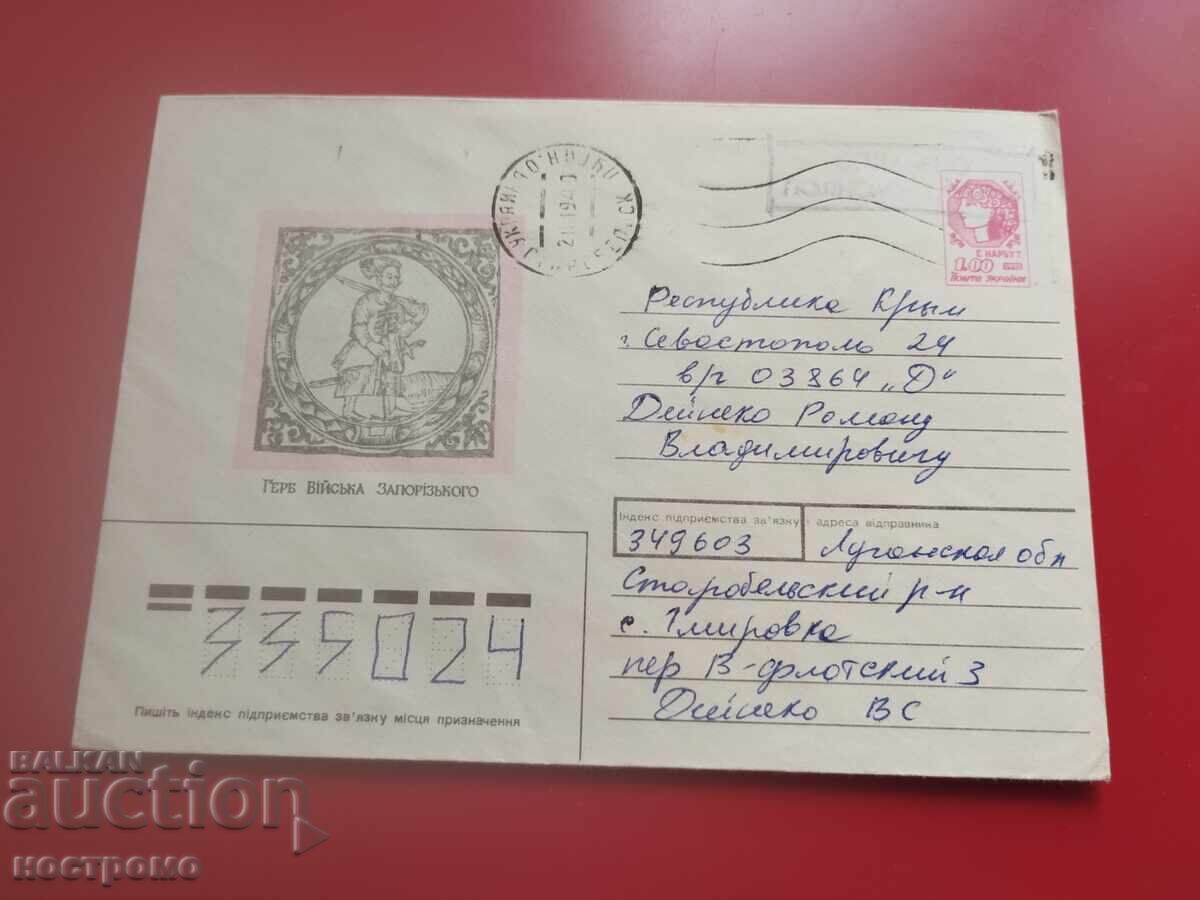 Г. НАРБУТ
1.00 1992
Пошта України
Республика Крым
г. Севастополь 24
в/ч 03864 „D“
Дейнеко Роману
Владимировичу
ГЕРБ ВІЙСЬКА ЗАПОРІЗЬКОГО
Індекс підприємства зв'язку і адреса відправника
349603 Луганская обл
Старобельский р-н
с. Чмировка
пер В-флотский 3
Дейнеко ВС
335024
Пишіть індекс підприємства зв'язку місця призначення
BALKAN
auction
ностромо